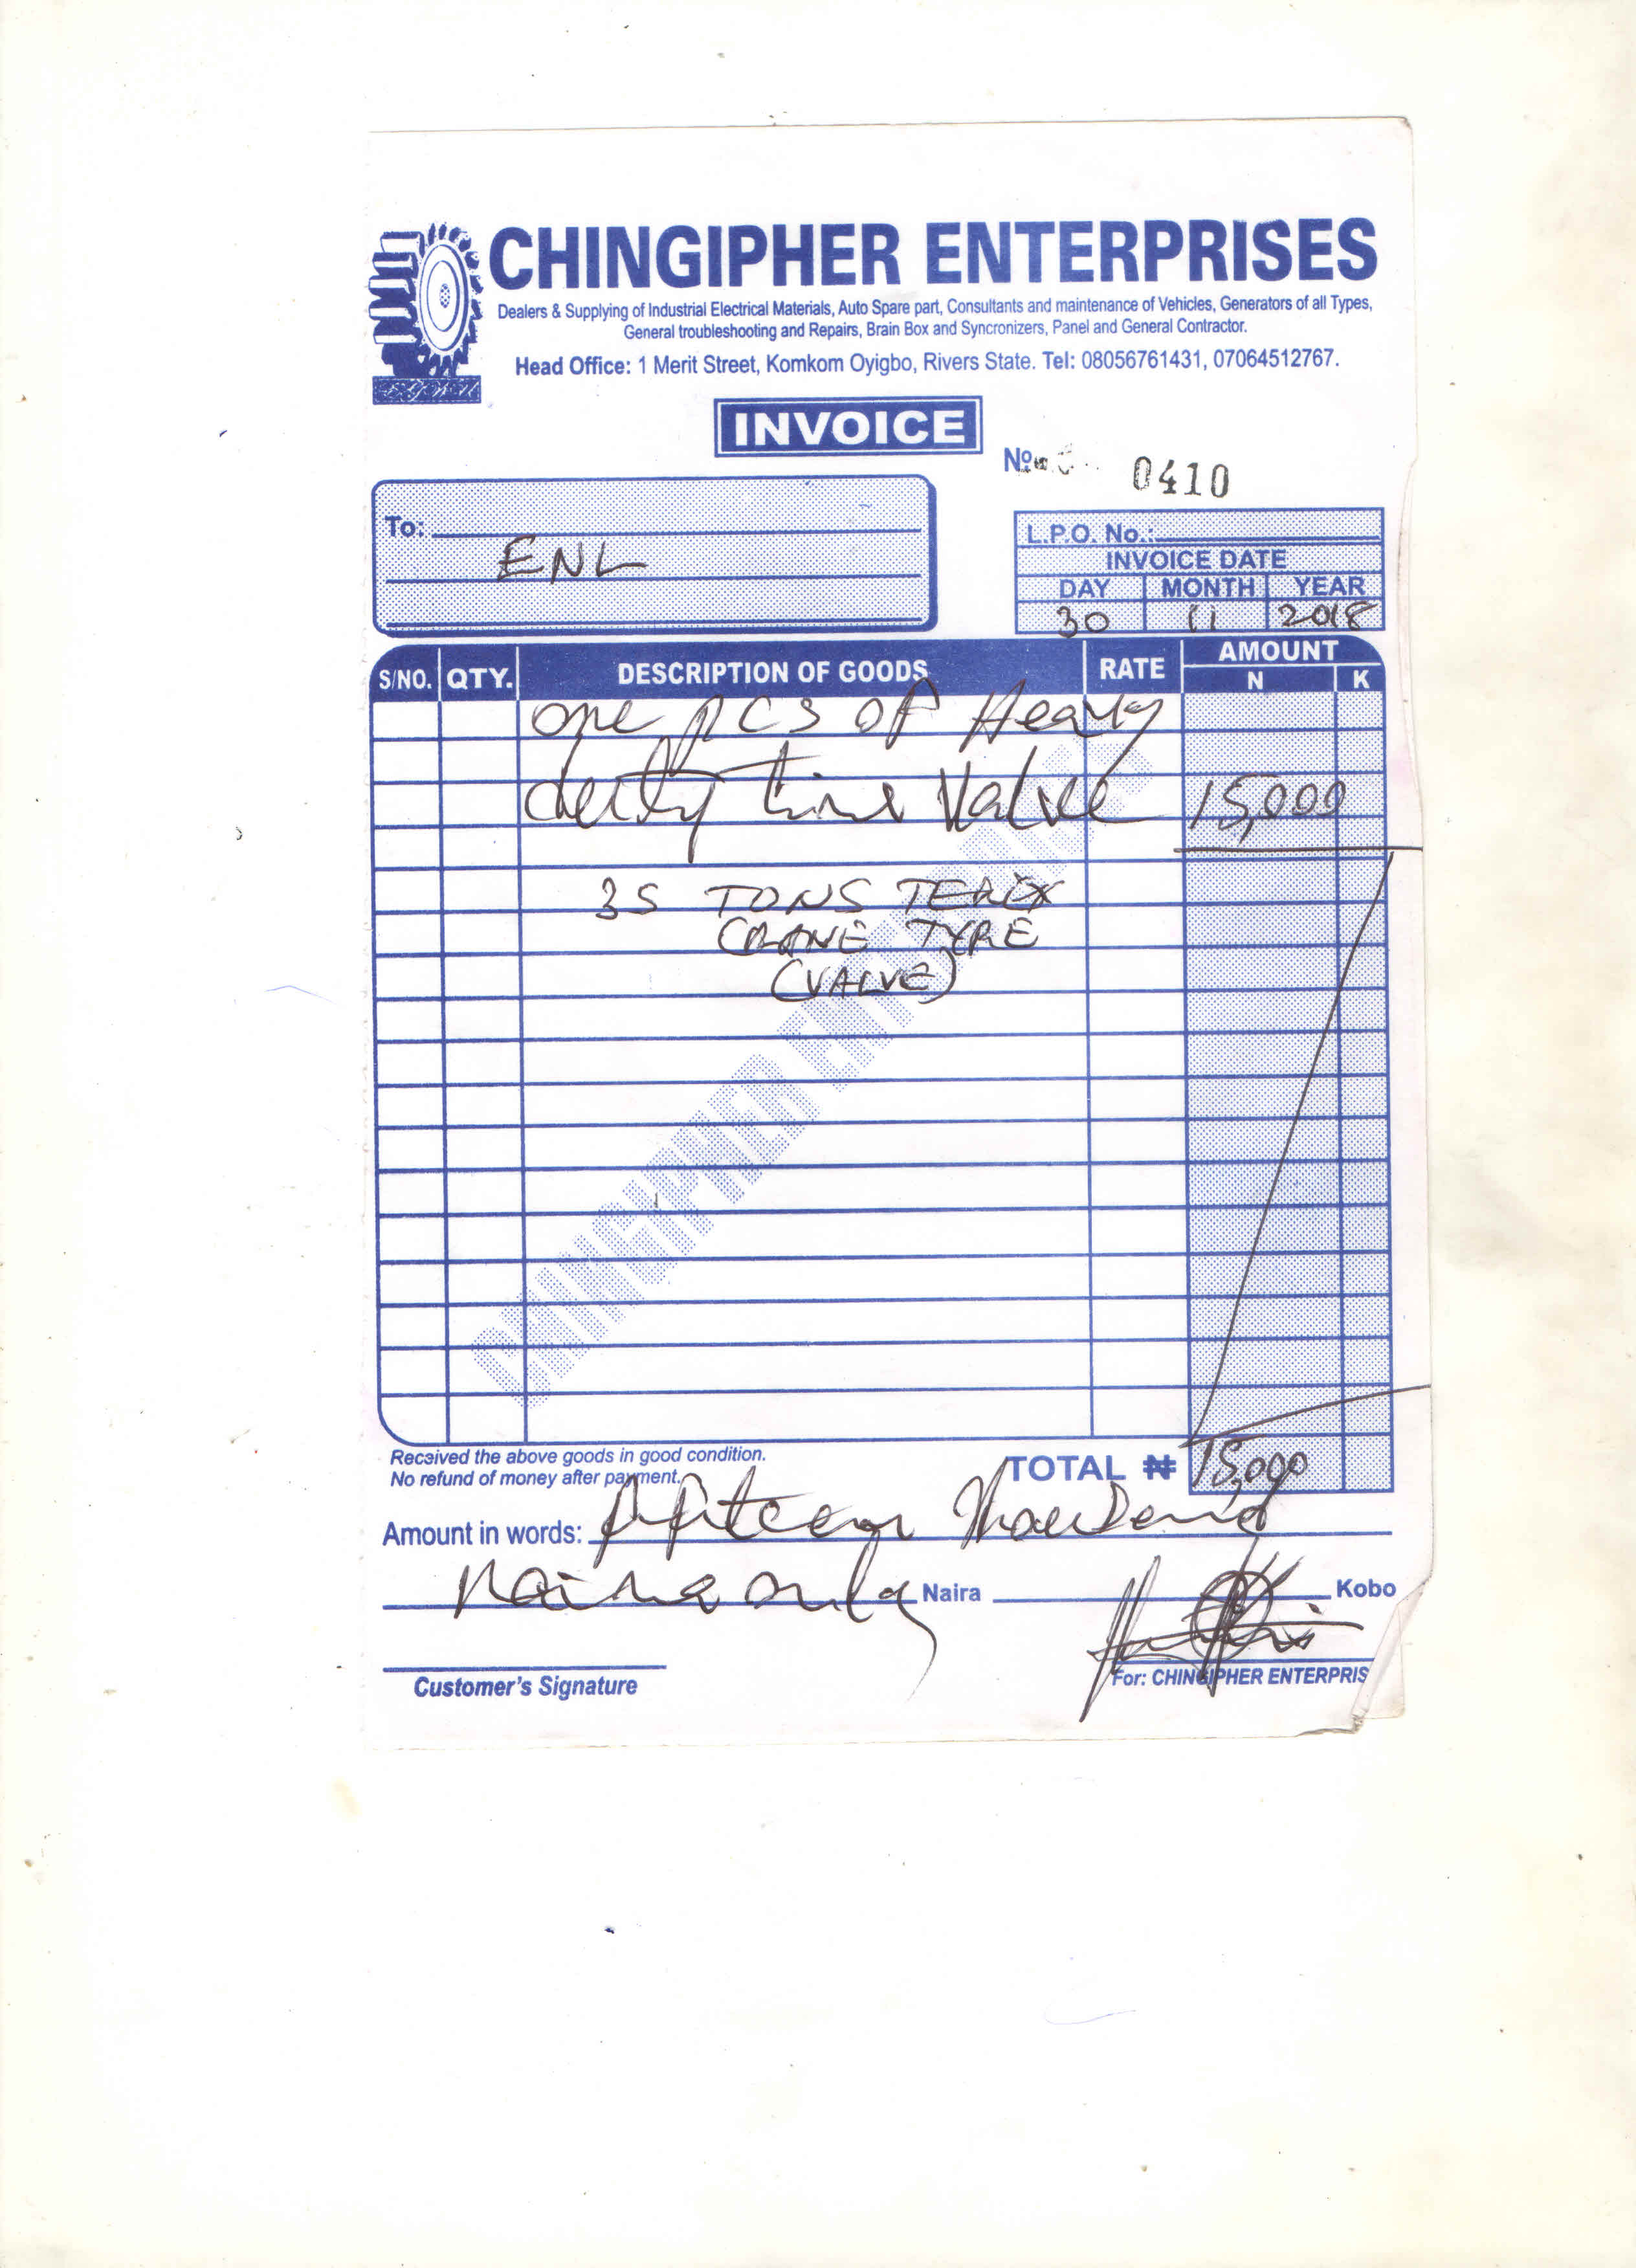 CHINGIPHER ENTERPRISES
Dealers & Supplying of Industrial Electrical Materials, Auto Spare part, Consultants and maintenance of Vehicles, Generators of all Types,
General troubleshooting and Repairs, Brain Box and Syncronizers, Panel and General Contractor.
Head Office: 1 Merit Street, Komkom Oyigbo, Rivers State. Tel: 08056761431, 07064512767.
INVOICE
No 0410
To:
ENL
L.P.O. No.:
INVOICE DATE
DAY MONTH YEAR
30 11 2018
S/NO. QTY. DESCRIPTION OF GOODS RATE AMOUNT
N K
one pcs of Heavy
Valve 15,000
35 TONS TEREX
CRANE TYRE
(VALVE)
CHINGIPHER ENTERPRISES
Received the above goods in good condition.
No refund of money after payment.
TOTAL ₦ 15,000
Amount in words: fifteen thousand
naira only Naira Kobo
Customer's Signature
For: CHINGIPHER ENTERPRIS